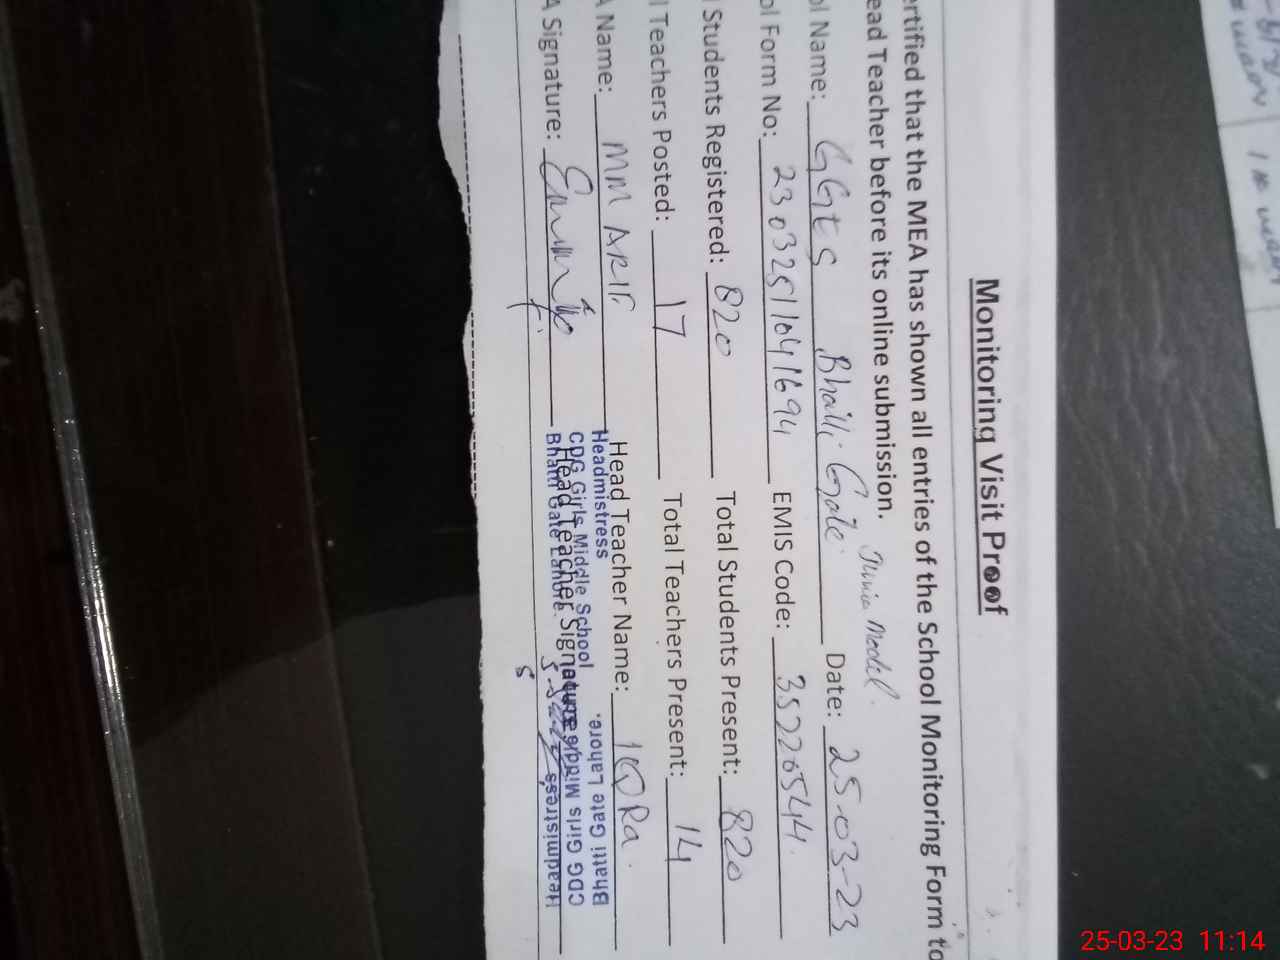 Monitoring Visit Proof
ertified that the MEA has shown all entries of the School Monitoring Form to
ead Teacher before its online submission.
ol Name: GGES Bhatti Gate Junior Model. Date: 25-03-23
ol Form No: 23032511041694 EMIS Code: 35220544.
l Students Registered: 820 Total Students Present: 820
l Teachers Posted: 17 Total Teachers Present: 14
A Name: MM ARIF Head Teacher Name: IQRa.
A Signature: Head Teacher Signature:
Headmistress
CDG Girls Middle School
Bhatti Gate Lahore.
Headmistress
CDG Girls Middle School
Bhatti Gate Lahore.
25-03-23 11:14